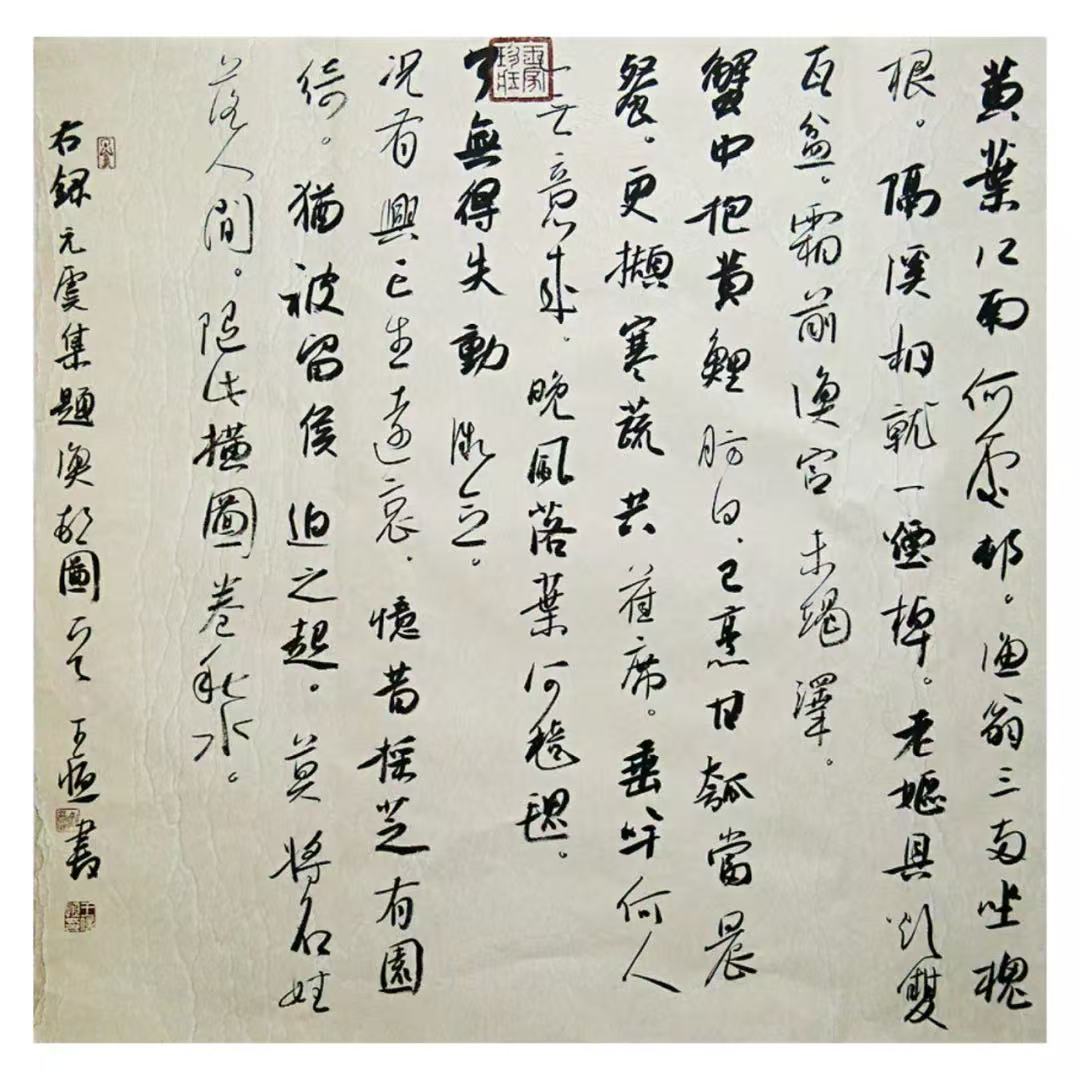 黄葉江南何處村。漁翁三两坐槐
根。隔溪相就一煙棹。老嫗具炊雙
瓦盆。霜前漁官未竭澤。
蟹中抱黄鯉肪白、已烹甘瓠當晨
餐。更擷寒蔬共萑席。垂竿何人
无意來。晚風落葉何毰毸。
了無得失動微念。
况有興亡生遠哀。憶昔採芝有園
綺。猶被留侯迫之起。莫將名姓
落人間。随此横圖卷秋水。
右録元虞集題漁村圖 王恒書